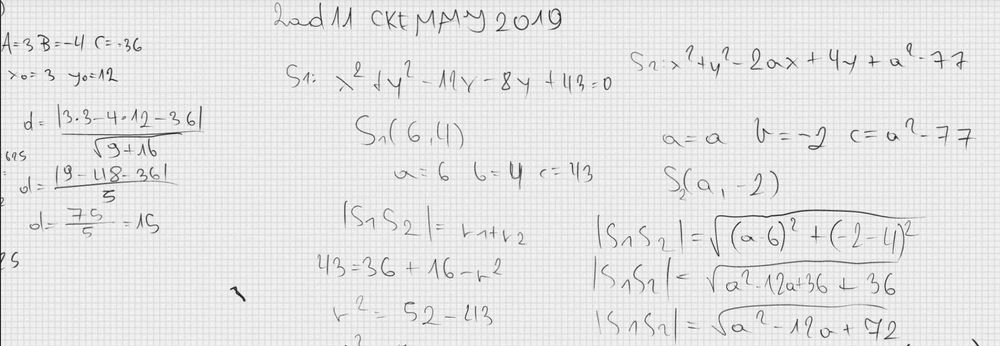 A=3 B=-4 C=-36
x₀=3 y₀=12
d= |3·3-4·12-36|
√9+16
d= |9-48-36|
5
d= 75/5 =15
zad 11 CKE MAJ 2019
S₁: x²+y²-12x-8y+43=0
S₁(6,4)
a=6 b=4 c=43
|S₁S₂|= r₁+r₂
43=36+16-r²
r²= 52-43
S₂: x²+y²-2ax+4y+a²-77
a=a b=-2 c=a²-77
S₂(a,-2)
|S₁S₂|=√(a-6)²+(-2-4)²
|S₁S₂|=√a²-12a+36+36
|S₁S₂|=√a²-12a+72